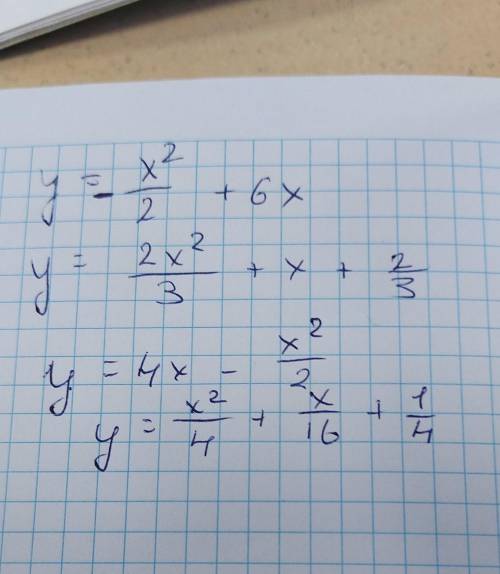 y = - x²/2 + 6x
y = 2x²/3 + x + 2/3
y = 4x - x²/2
y = x²/4 + x/16 + 1/4